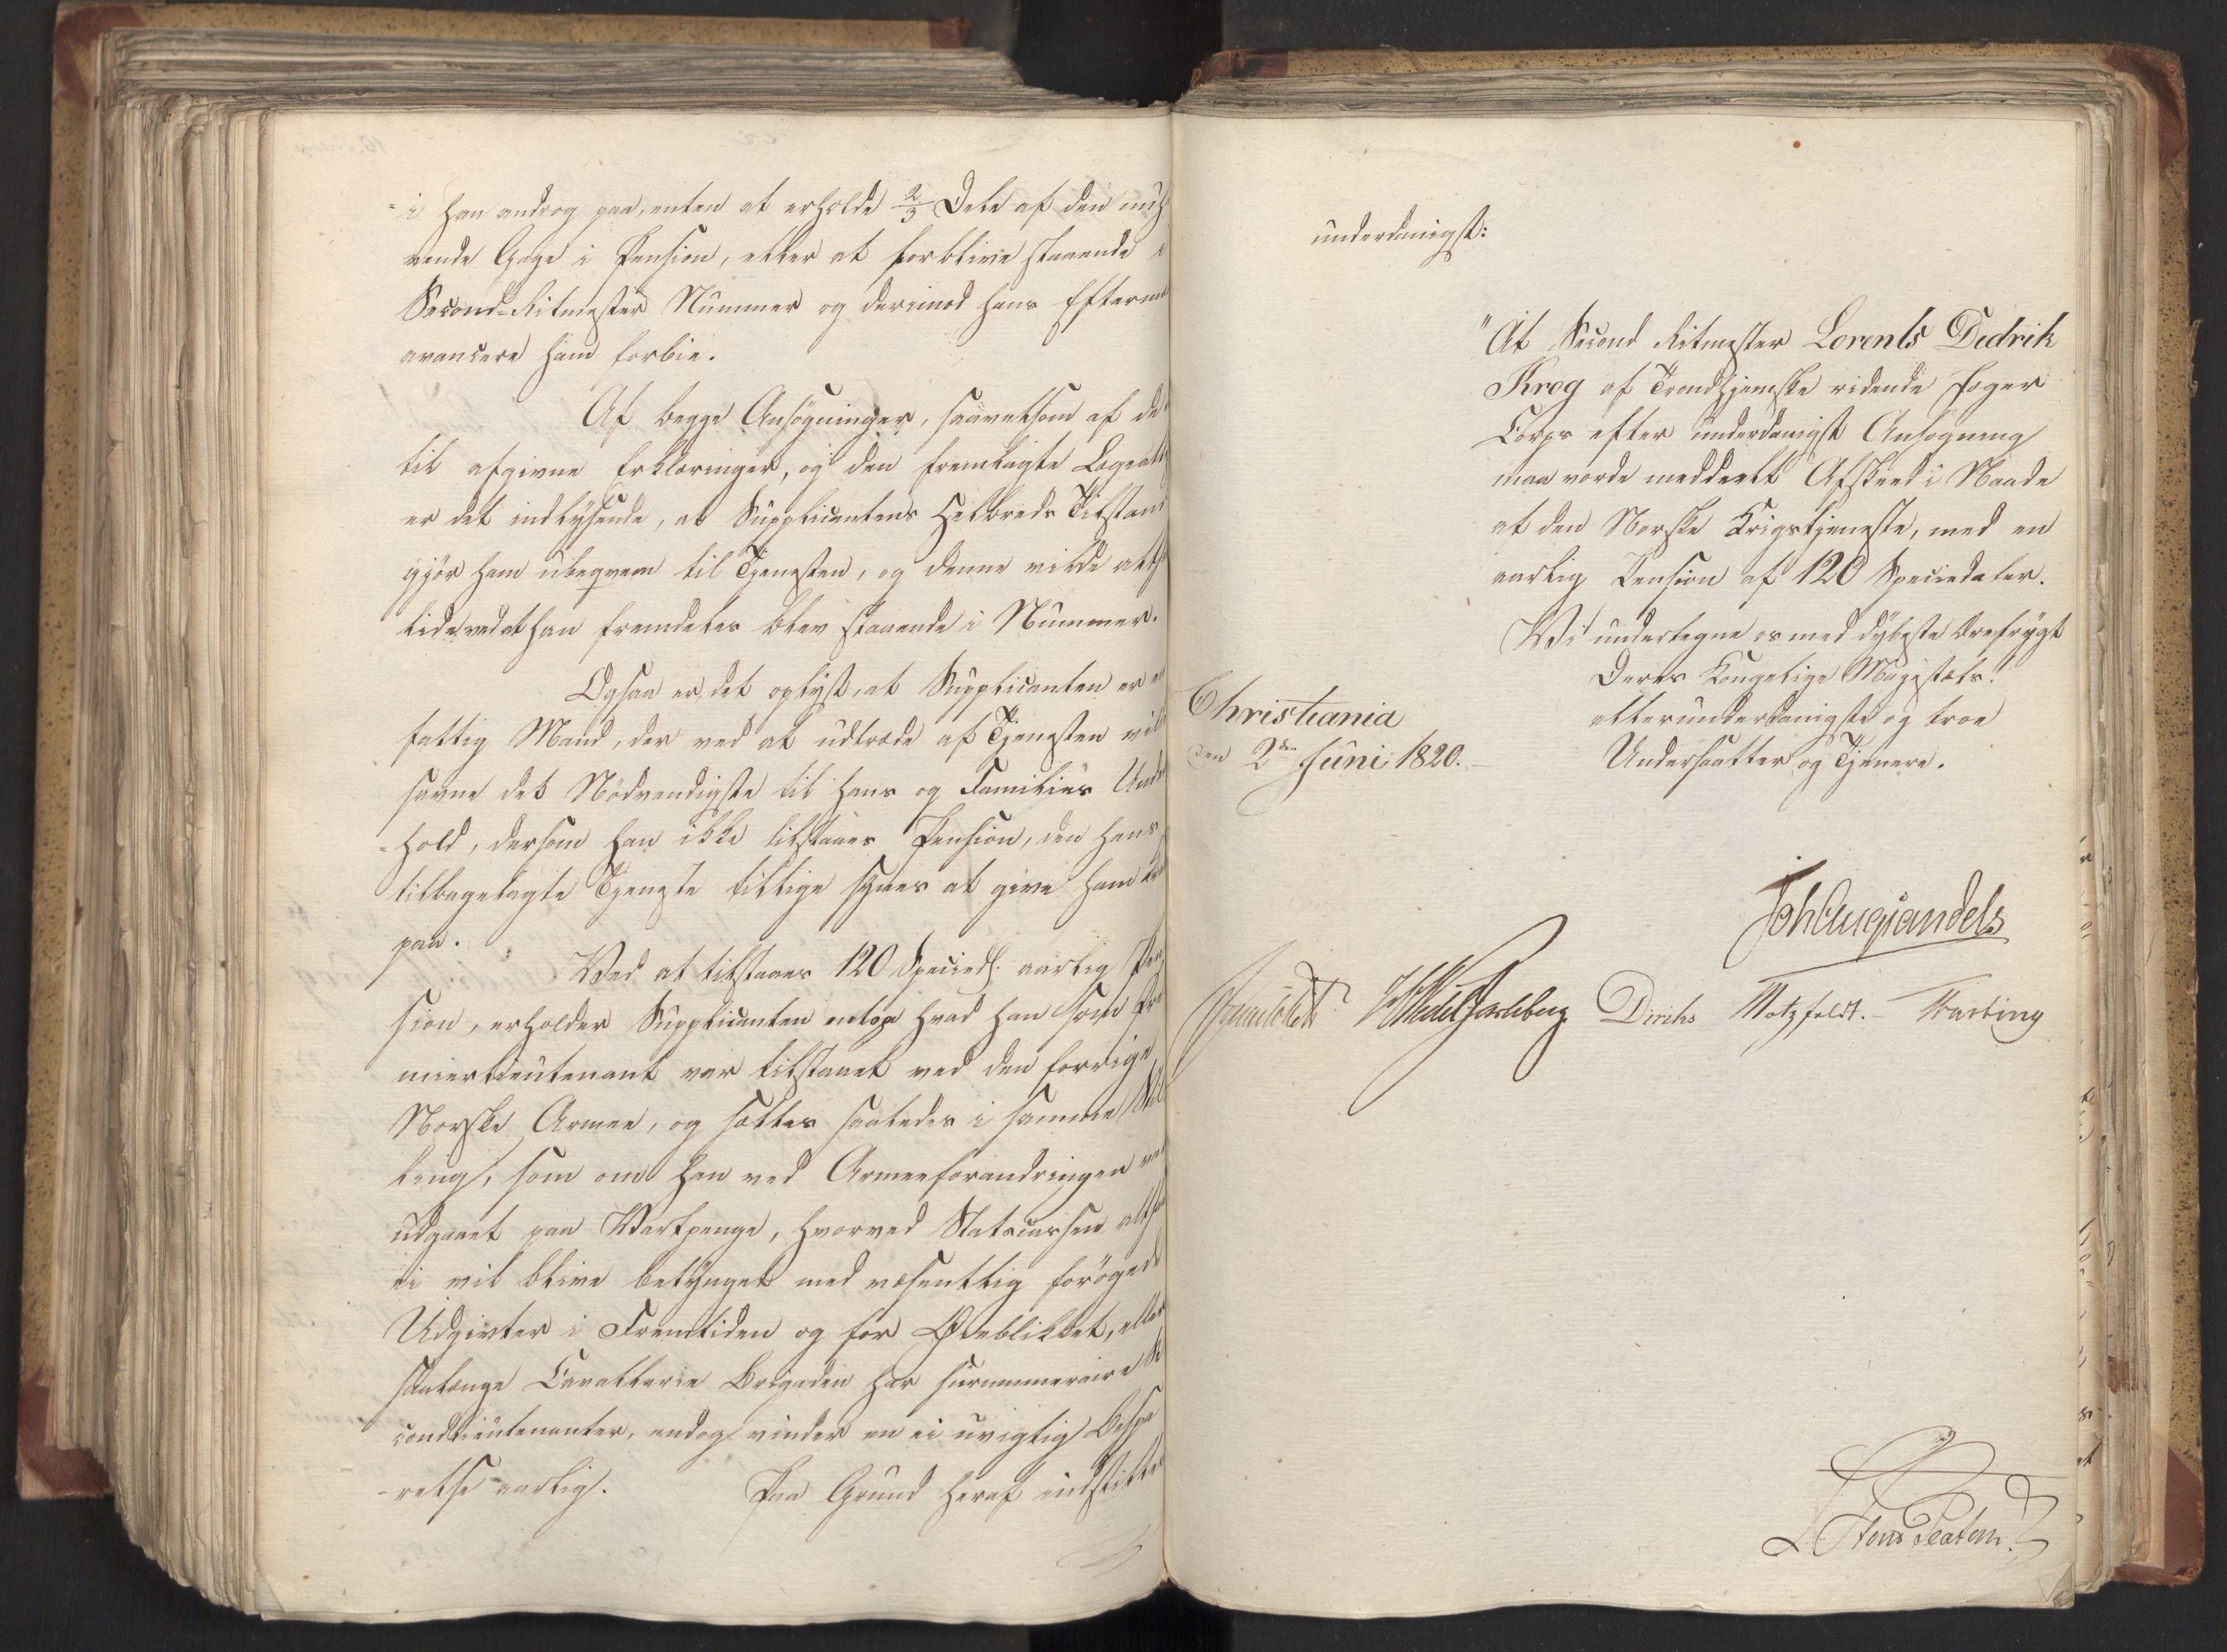 i han androg paa, enten at erholde 2/3 Dele af den nuh
vende Gage i Pension, eller at forblive staaende i
Second-Ritmester Nummer og derimod hans Efterm
avancere ham forbie.
Af begge Ansøgninger, saavelsom af de
til afgivne Erklæringer, og den fremlagte Lægeatt
er det indlysende, at Supplicantens Helbreds Tilstand
gjør ham ubeqvem til Tjenesten, og denne vilde altsaa
lide ved at han fremdeles blev staaende i Nummer.
Ogsaa er det oplyst, at Supplicanten er en
fattig Mand, der ved at udtræde af Tjenesten vil
savne det Nødvendigste til hans og Families Under
-hold, dersom han ikke tilstaaes Pension, den hans
tilbagelagte Tjeneste tillige synes at give ham
paa.
Ved at tilstaaes 120 Specied. aarlig Pen
sion, erholder Supplicanten netop hvad han som Pre
mierlieutenant var tilstaaet ved den forrige
Norske Armee, og sættes saaledes i samme Stil
ling, som om han ved Armeeforandringen var
udgaaet paa Vartpenge, hvorved Statscassen altsaa
ei vil blive betynget med væsentlig forøgede
Udgivter i Fremtiden og for Øieblikket, eller
saalænge Cavallerie Brigaden har surnumeraire Se
condlieutenanter, endog vinder en ei uvigtig Bespa
-relse aarlig.
Paa Grund heraf indstilles
underdanigst:
"At Second Ritmester Lorents Dedrik
Krog af Trondhjemske ridende Jæger
Corps efter underdanigst Ansøgning
maa vorde meddeelt Afskeed i Naade
af den Norske Krigstjeneste, med en
aarlig Pension af 120 Speciedaler.
Vi undertegne os med dybeste Ærefrygt
Deres Kongelige Majestæts!
allerunderdanigste og troe
Undersaatter og Tjenere.
Christiania
den 2den Juni 1820.
Joh Aug Sandels
HWedelJarlsberg Diriks Motzfeldt. Fasting